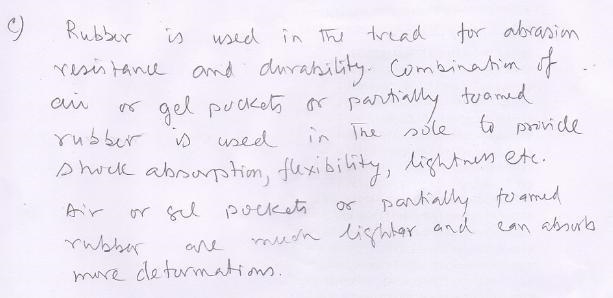 c) Rubber is used in the tread for abrasion
resistance and durability. Combination of
air or gel pockets or partially foamed
rubber is used in the sole to provide
shock absorption, flexibility, lightness etc.
Air or gel pockets or partially foamed
rubber are much lighter and can absorb
more deformations.